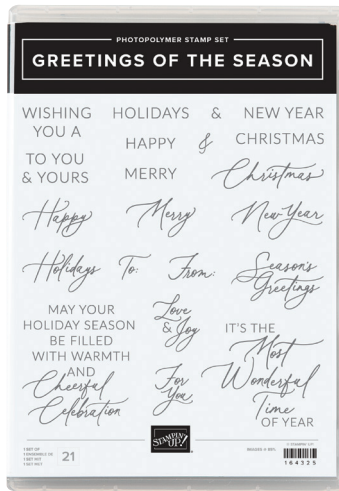 PHOTOPOLYMER STAMP SET
GREETINGS OF THE SEASON
WISHING
YOU A
HOLIDAYS
&
NEW YEAR
HAPPY
&
CHRISTMAS
TO YOU
& YOURS
MERRY
Christmas
Happy
Merry
New Year
Holidays
To:
From:
Season's
Greetings
MAY YOUR
HOLIDAY SEASON
BE FILLED
WITH WARMTH
AND
Cheerful
Celebration
Love
& Joy
For
You
IT'S THE
Most
Wonderful
Time
OF YEAR
STAMPIN' UP!
1 SET OF
21
© STAMPIN' UP!
164325